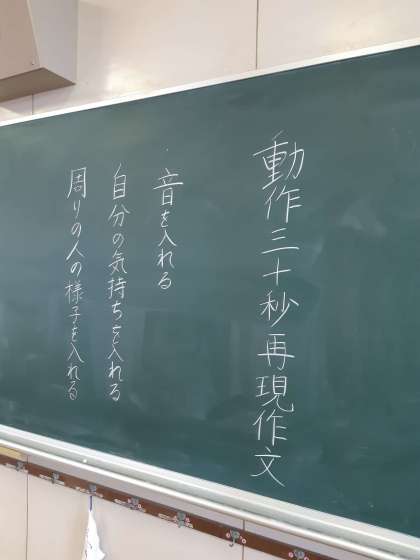 動作三十秒再現作文
・音を入れる
自分の気持ちを入れる
周りの人の様子を入れる